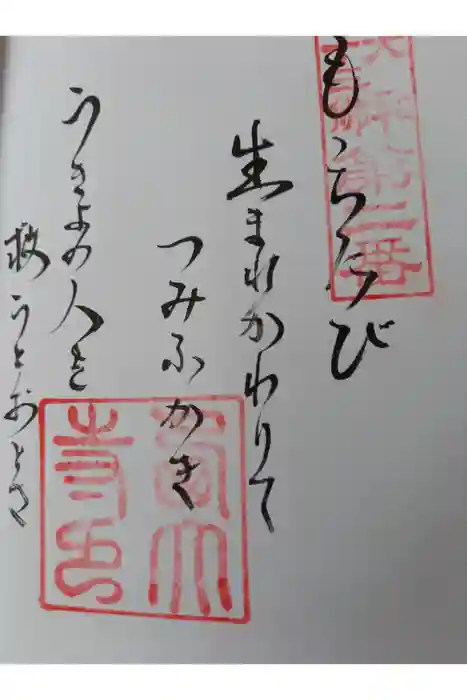 第二番
もゝちたび
生まれかわりて
つみふかき
うきよの人を
救うとおとさ
寺印